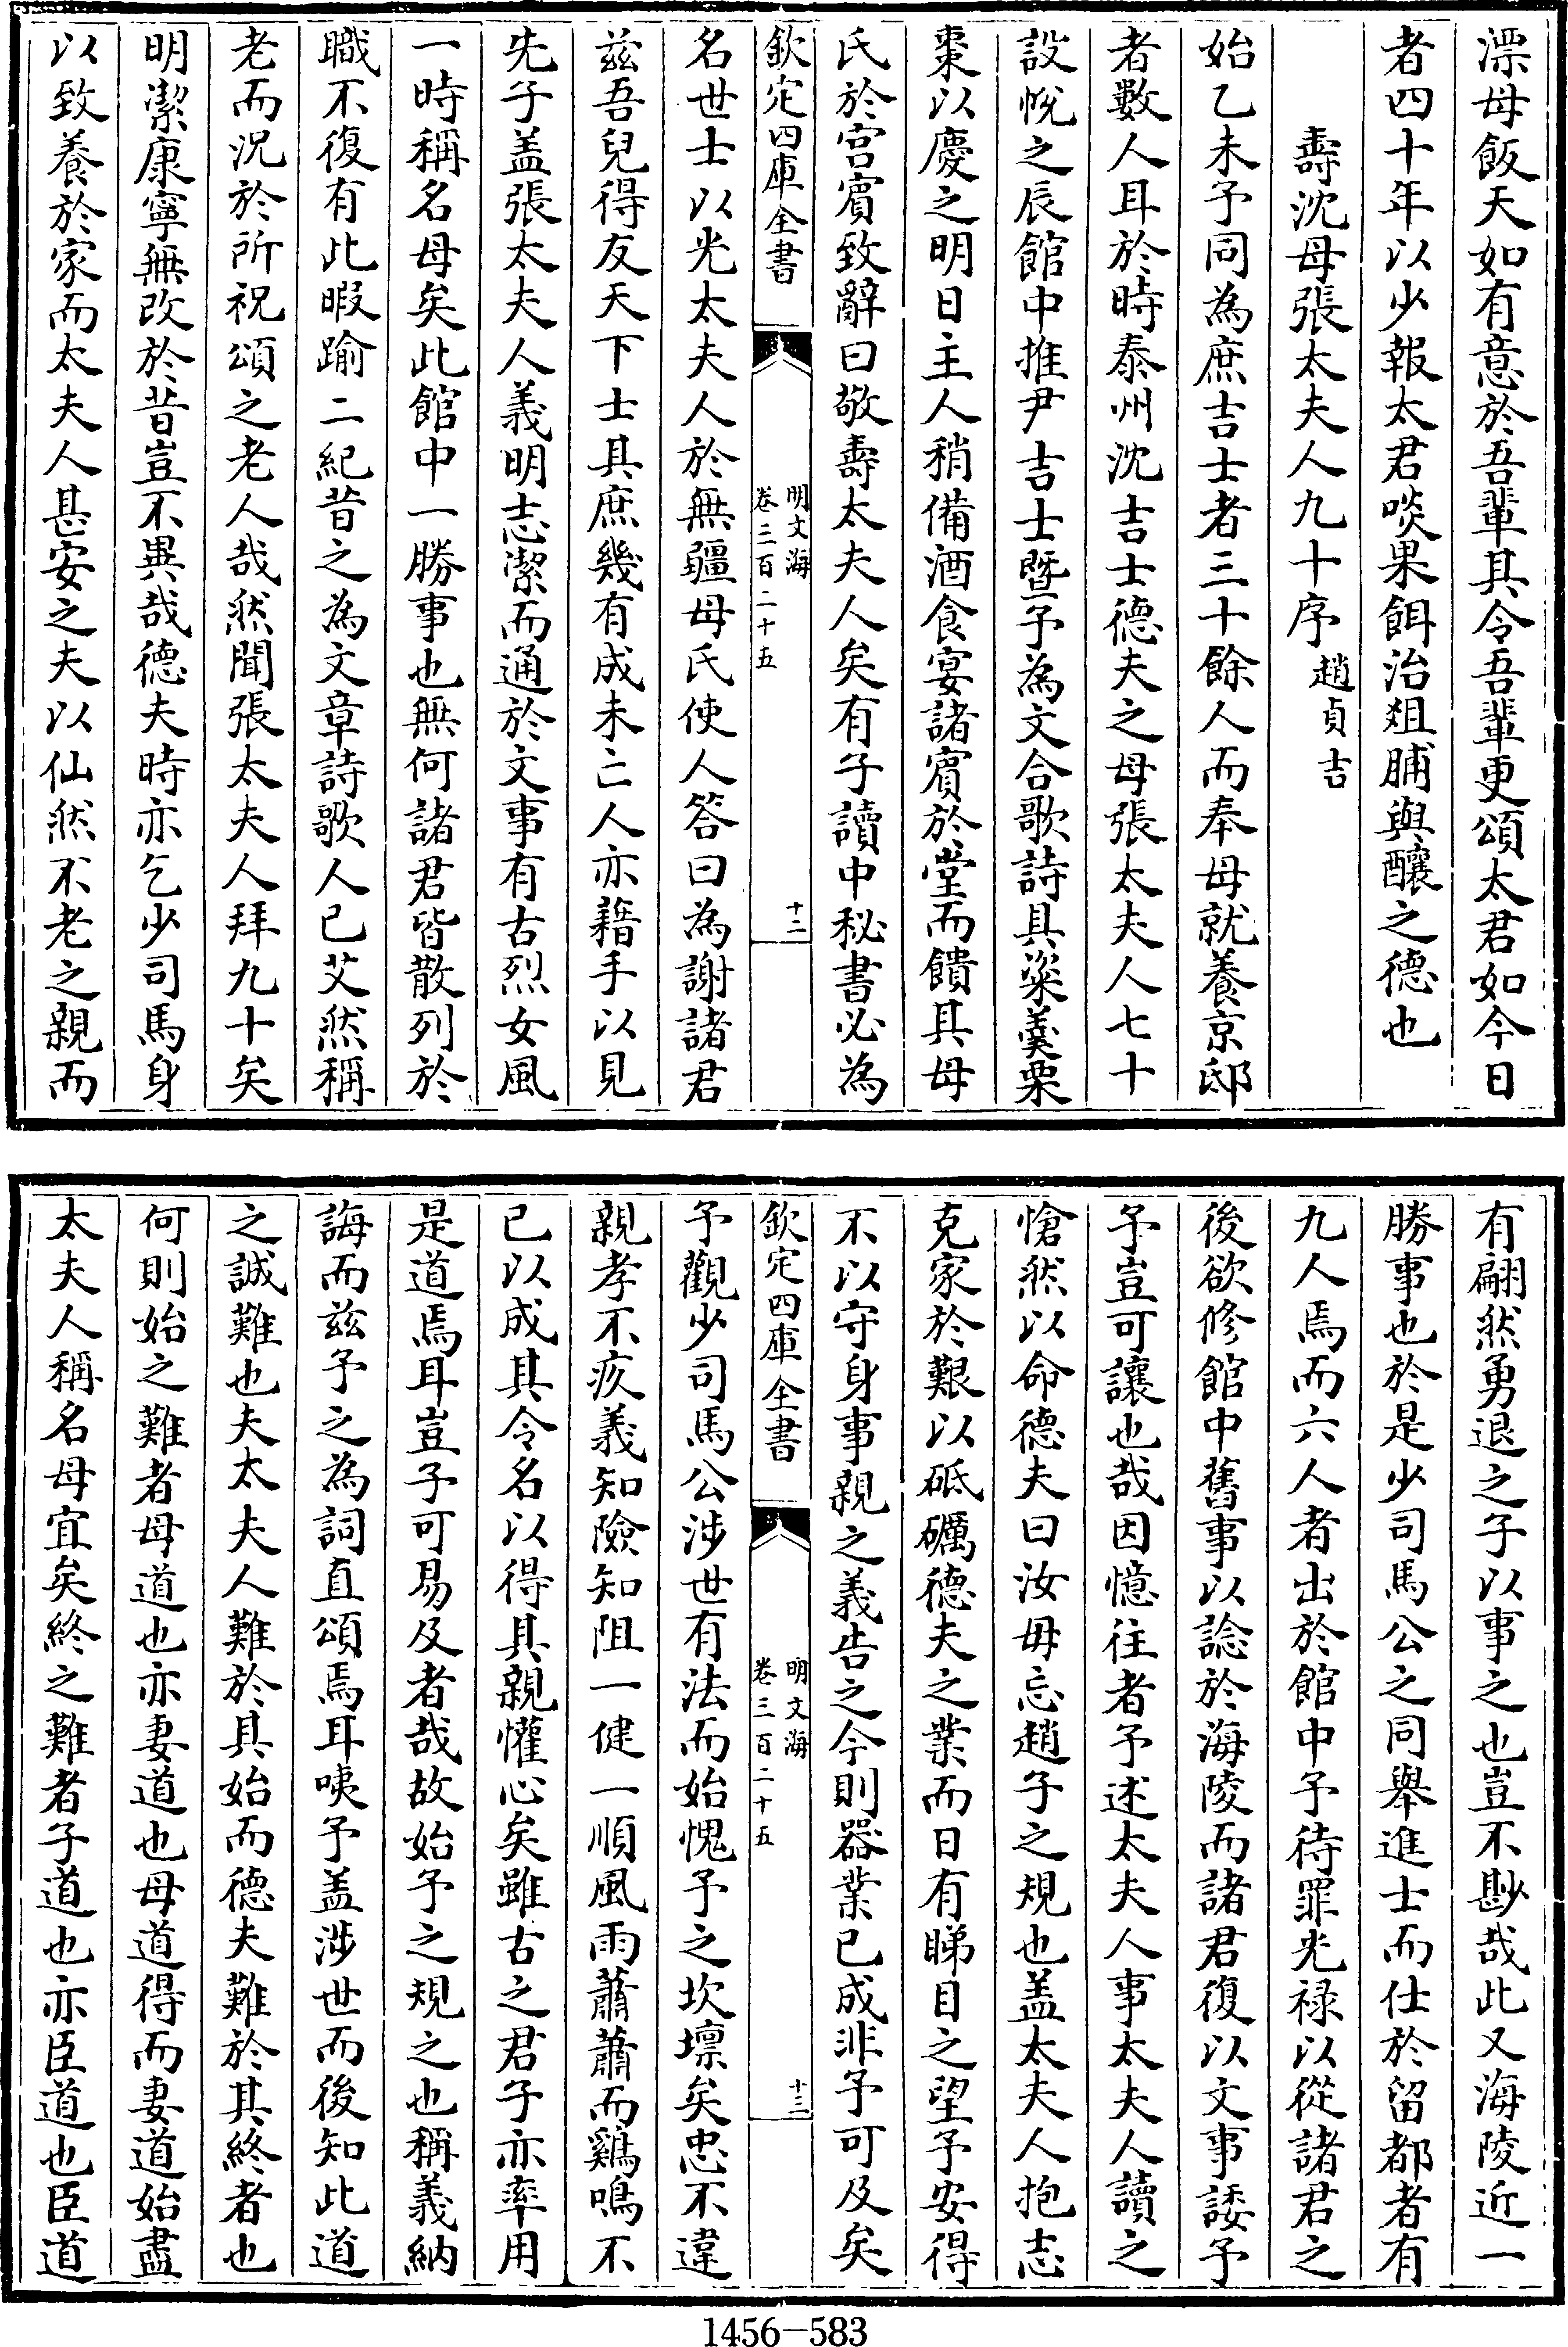 漂母飯天如有意於吾輩其令吾輩更頌太君如今日
者四十年以少報太君啖果餌治俎脯與釀之德也
壽沈母張太夫人九十序 趙貞吉
始乙未予同為庶吉士者三十餘人而奉母就養京邸
者數人耳於時泰州沈吉士德夫之母張太夫人七十
設帨之辰館中推尹吉士暨予為文合歌詩具粢羹栗
棗以慶之明日主人稍備酒食宴諸賓於堂而饋其母
氏於宮賓致辭曰敬壽太夫人矣有子讀中秘書必為
欽定四庫全書 明文海 卷三百二十五 十二
名世士以光太夫人於無疆母氏使人答曰為謝諸君
兹吾兒得友天下士具庶幾有成未亡人亦藉手以見
先子盖張太夫人義明志潔而通於文事有古烈女風
一時稱名母矣此館中一勝事也無何諸君皆散列於
職不復有此暇踰二紀昔之為文章詩歌人已艾然稱
老而況於所祝頌之老人哉然聞張太夫人拜九十矣
明潔康寧無改於昔豈不異哉德夫時亦乞少司馬身
以致養於家而太夫人甚安之夫以仙然不老之親而
有翩然勇退之子以事之也豈不尠哉此又海陵近一
勝事也於是少司馬公之同舉進士而仕於留都者有
九人焉而六人者出於館中予待罪光禄以從諸君之
後欲修館中舊事以諗於海陵而諸君復以文事諉予
予豈可讓也哉因憶往者予述太夫人事太夫人讀之
愴然以命德夫曰汝毋忘趙子之規也盖太夫人抱志
克家於艱以砥礪德夫之業而日有睇目之望予安得
不以守身事親之義告之今則器業已成非予可及矣
欽定四庫全書 明文海 卷三百二十五 十三
予觀少司馬公涉世有法而始愧予之坎壈矣忠不違
親孝不疚義知險知阻一健一順風雨蕭蕭而鷄鳴不
已以成其令名以得其親懽心矣雖古之君子亦率用
是道焉耳豈予可易及者哉故始予之規之也稱義納
誨而兹予之為詞直頌焉耳咦予盖涉世而後知此道
之誠難也夫太夫人難於具始而德夫難於其終者也
何則始之難者母道也亦妻道也母道得而妻道始盡
太夫人稱名母宜矣終之難者子道也亦臣道也臣道
1456—583